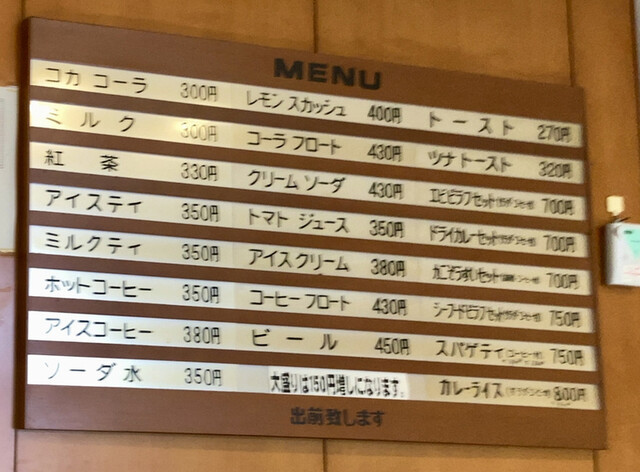 MENU
コカ コーラ 300円
ミルク 300円
紅茶 330円
アイスティ 350円
ミルクティ 350円
ホットコーヒー 350円
アイスコーヒー 380円
ソーダ水 350円
レモン スカッシュ 400円
コーラ フロート 430円
クリーム ソーダ 430円
トマト ジュース 350円
アイスクリーム 380円
コーヒー フロート 430円
ビール 450円
大盛りは150円増しになります。
トースト 270円
ツナ トースト 320円
エビピラフセット 700円
ドライカレーセット 700円
かにぞうすいセット 700円
シーフードピラフセット 750円
スパゲティ 750円
カレーライス 800円
出前致します